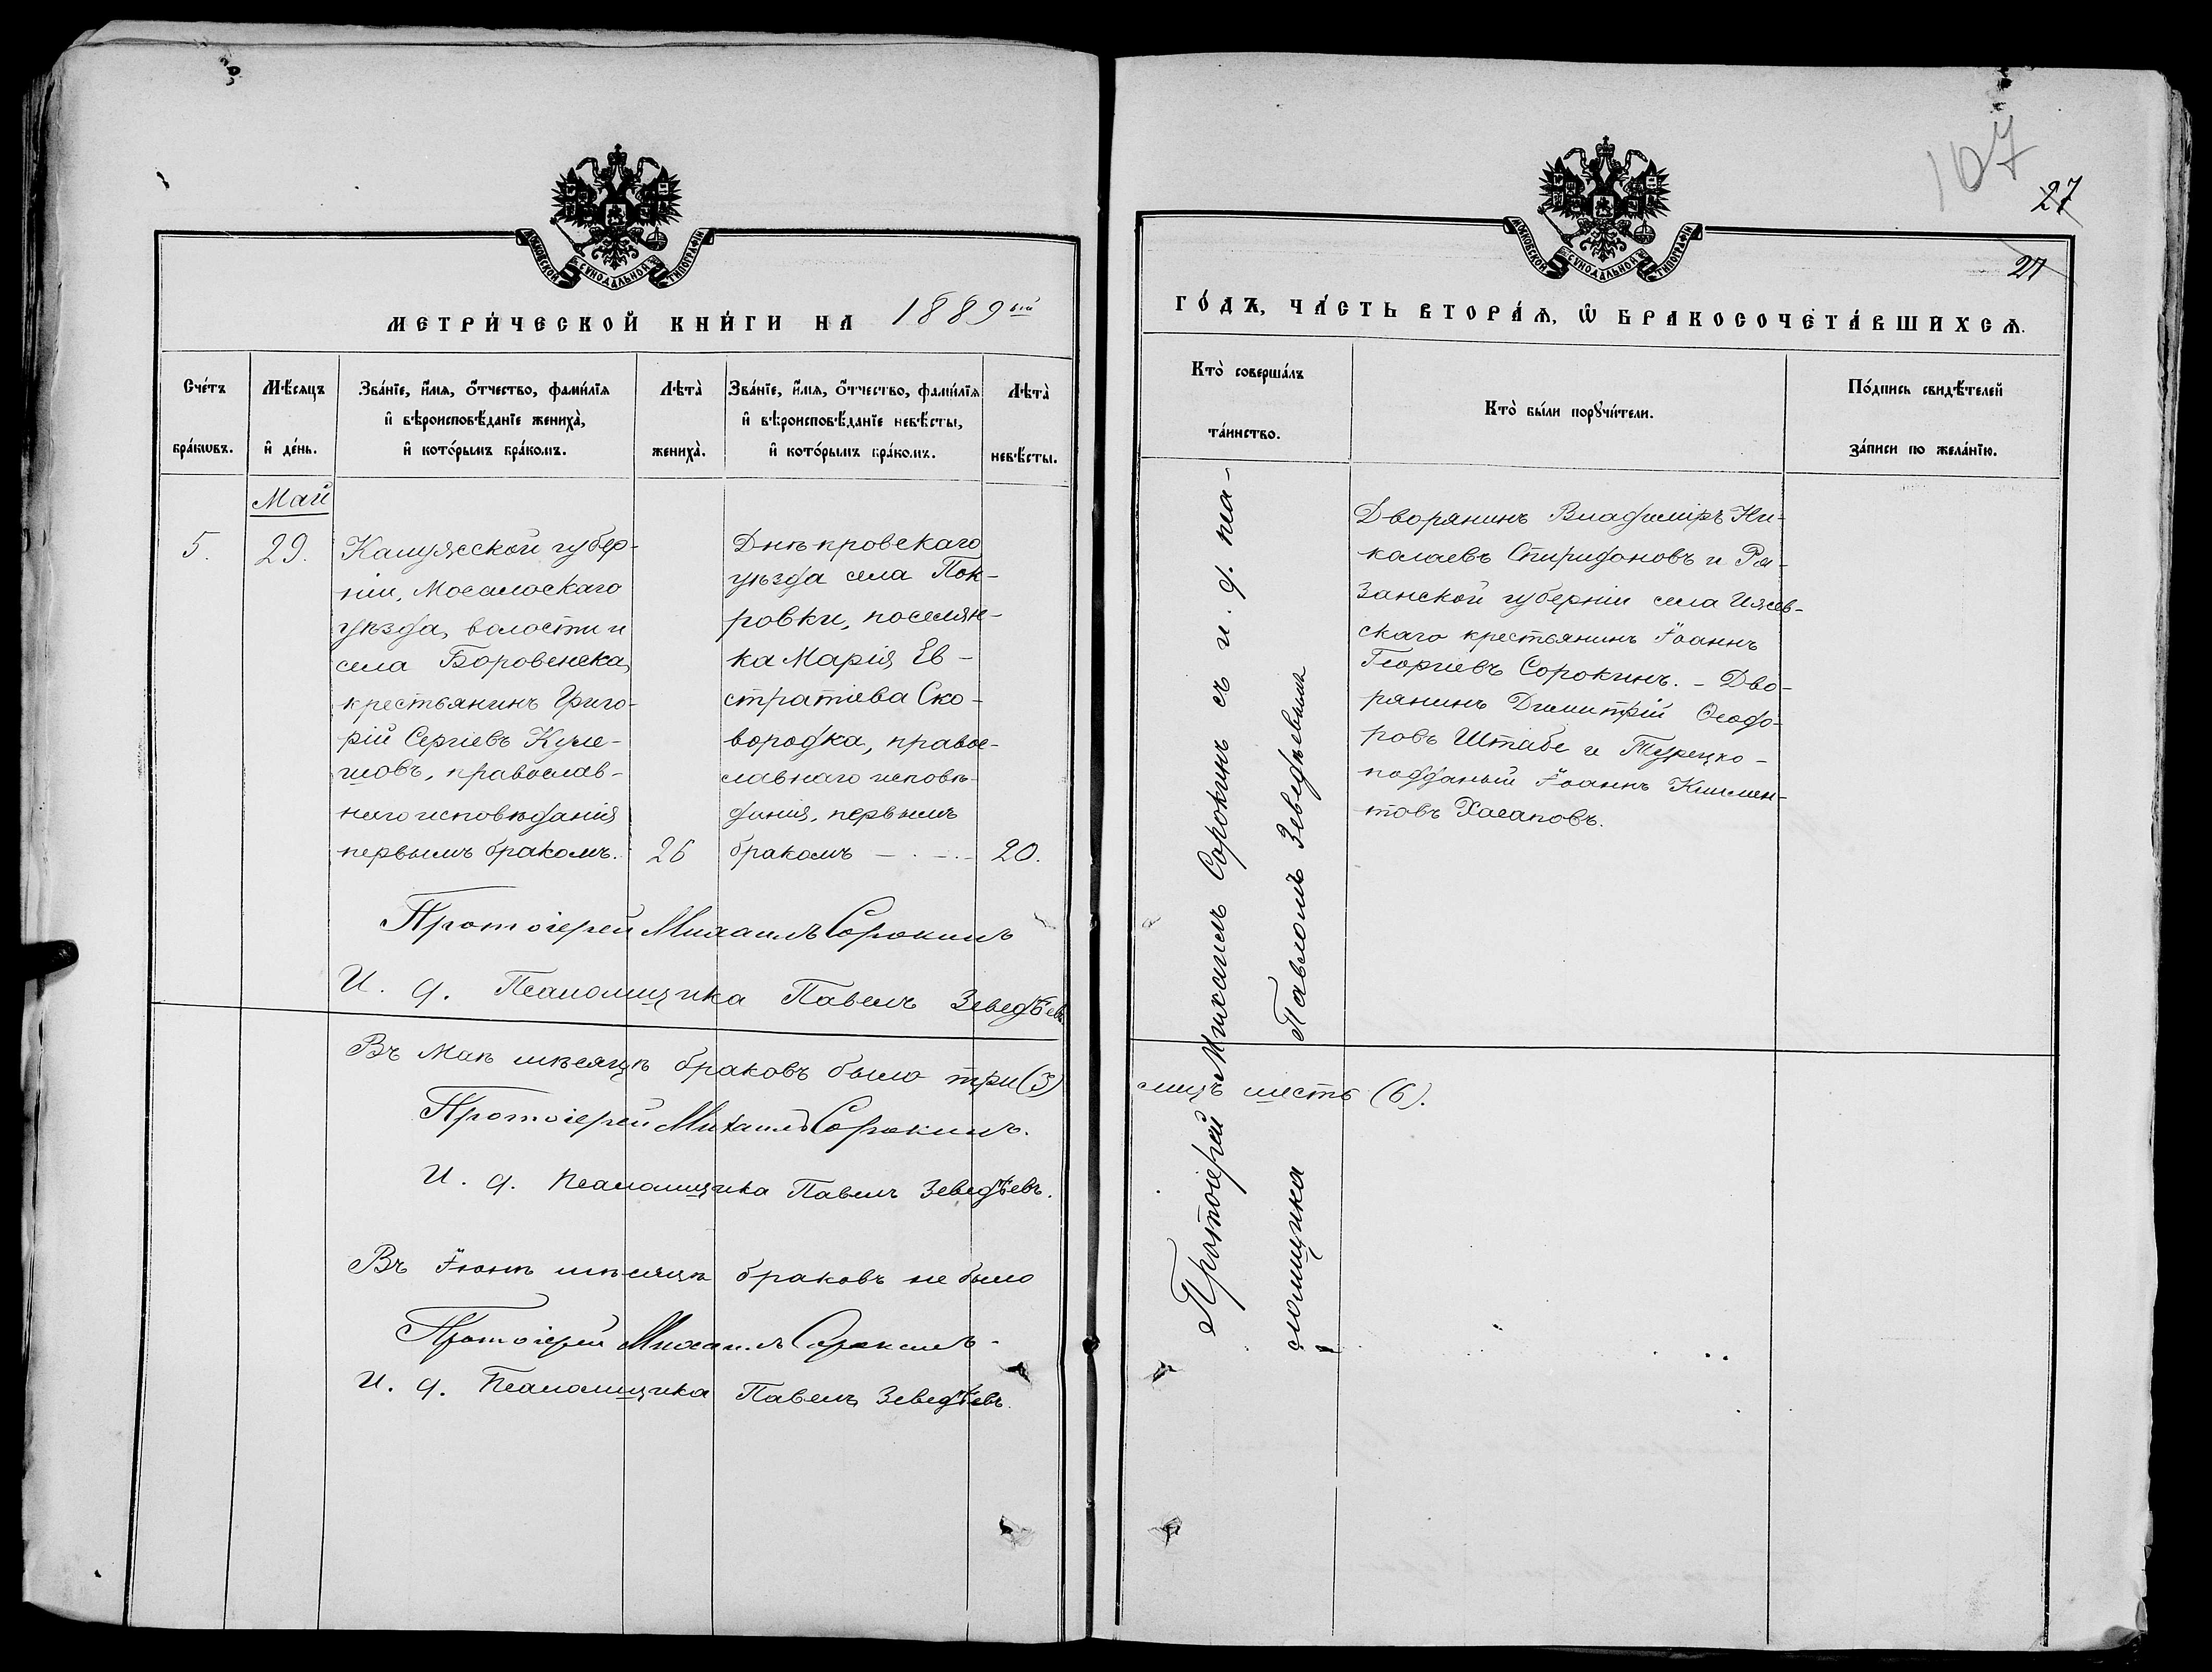 МОСКОВСКОЙ СУНОДАЛЬНОЙ ТИПОГРАФІИ
МЕТРИ́ЧЕСКОЙ КНИ́ГИ НА 1889ый
Сче́тъ бра́кωвъ.
Мѣ́сяцъ и҆ де́нь.
Зва́нїе, и҆́мѧ, ѻ҆́тчество, фами́лїѧ и҆ вѣроисповѣ́данїе жениха̀, и҆ кото́рымъ бра́комъ.
Лѣта̀ жениха̀.
Зва́нїе, и҆́мѧ, ѻ҆́тчество, фами́лїѧ и҆ вѣроисповѣ́данїе невѣ́сты, и҆ кото́рымъ бра́комъ.
Лѣта̀ невѣ́сты.
Май
5.
29.
Калужской губер-
ніи, Мосальскаго
уѣзда, волости и
села Боровенска,
крестьянинъ Григо-
рій Сергіевъ Куле-
шовъ, православ-
наго исповѣданія
первымъ бракомъ.
26
Днѣпровскаго
уѣзда села Пок-
ровки, поселян-
ка Марія Ев-
стратіева Ско-
вородка, правос-
лавнаго исповѣ-
данія, первымъ
бракомъ — . —.-
20.
Протоіерей Михаилъ Сорокинъ
И. д. Псаломщика Павелъ Зеведѣевъ
Въ Маѣ мѣсяцѣ браковъ было три (3)
Протоіерей Михаилъ Сорокинъ.
И. д. Псаломщика Павелъ Зеведѣевъ.
Въ Іюнѣ мѣсяцѣ браковъ не было
Протоіерей Михаилъ Сорокинъ-
И. д. Псаломщика Павелъ Зеведѣевъ.
107
27
27
МОСКОВСКОЙ СУНОДАЛЬНОЙ ТИПОГРАФІИ
ГО́ДЪ, ЧА́СТЬ ВТОРА́Ѧ, Ѽ БРАКОСОЧЕТА́ВШИХСѦ.
Кто̀ соверша́лъ та́инство.
Кто̀ бы́ли порꙋчи́тели.
По́дпись свидѣ́телей за́писи по жела́нїю.
Протоіерей Михаилъ Сорокинъ съ и. д. пса-
ломщика Павломъ Зеведѣевымъ
Дворянинъ Владиміръ Ни-
колаевъ Спиридоновъ и Ря-
занской губерніи села Ижев-
скаго крестьянинъ Іоаннъ
Георгіевъ Сорокинъ. - Дво-
рянинъ Димитрій Ѳеодо-
ровъ Штабе и Турецко-
подданый Іоаннъ Климен-
товъ Хасаповъ.
лицъ шесть (6).